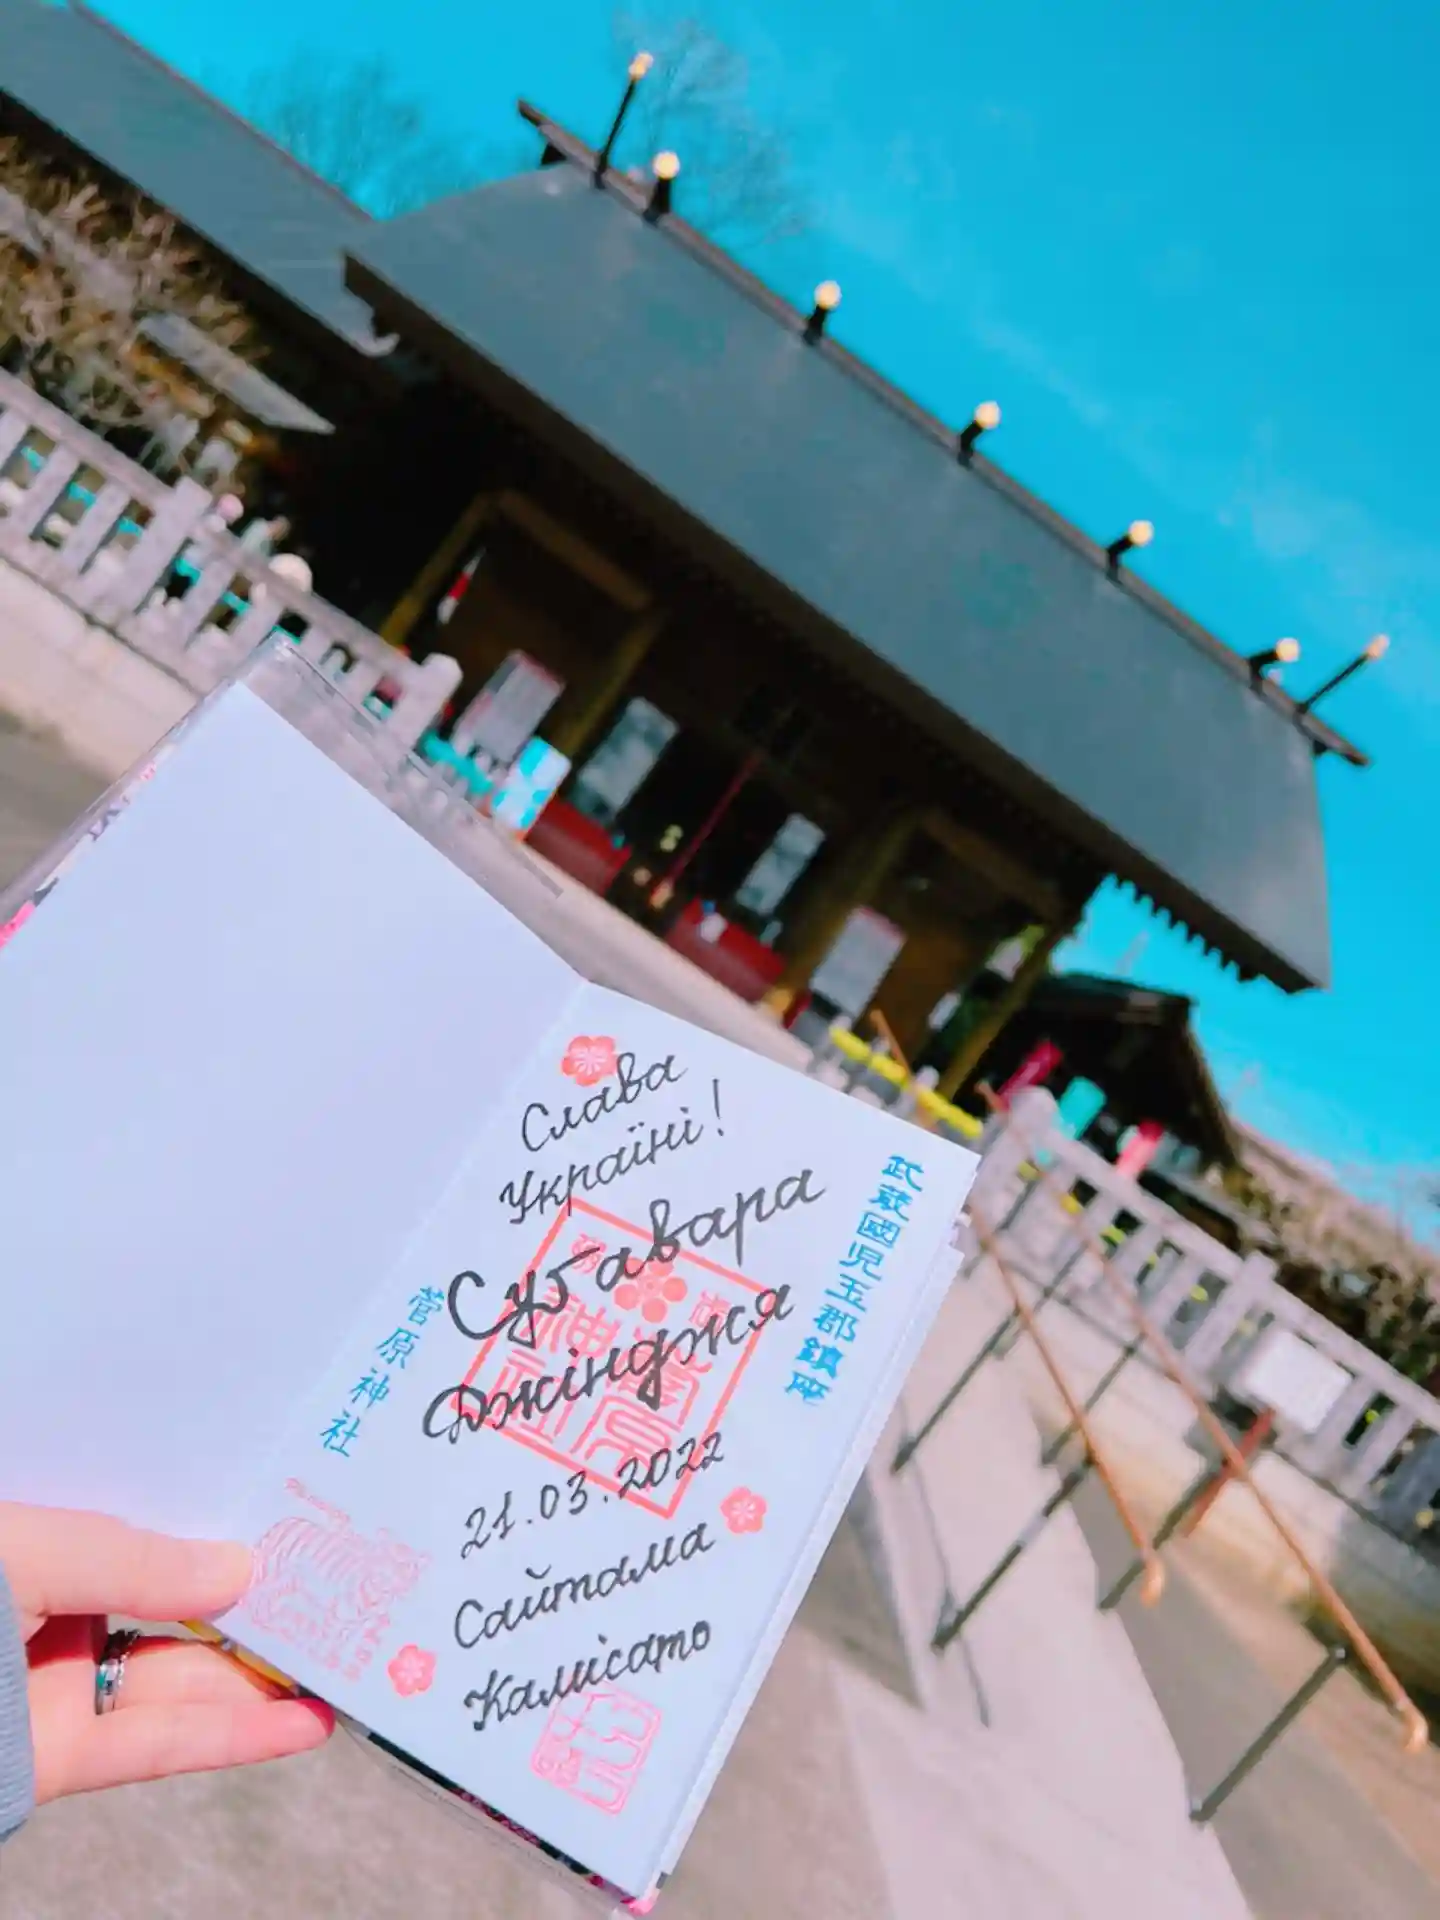 Слава
Україні!
Сугавара
Джінджя
21.03.2022
Сайтама
Камісато
武蔵國児玉郡鎮座
菅原神社